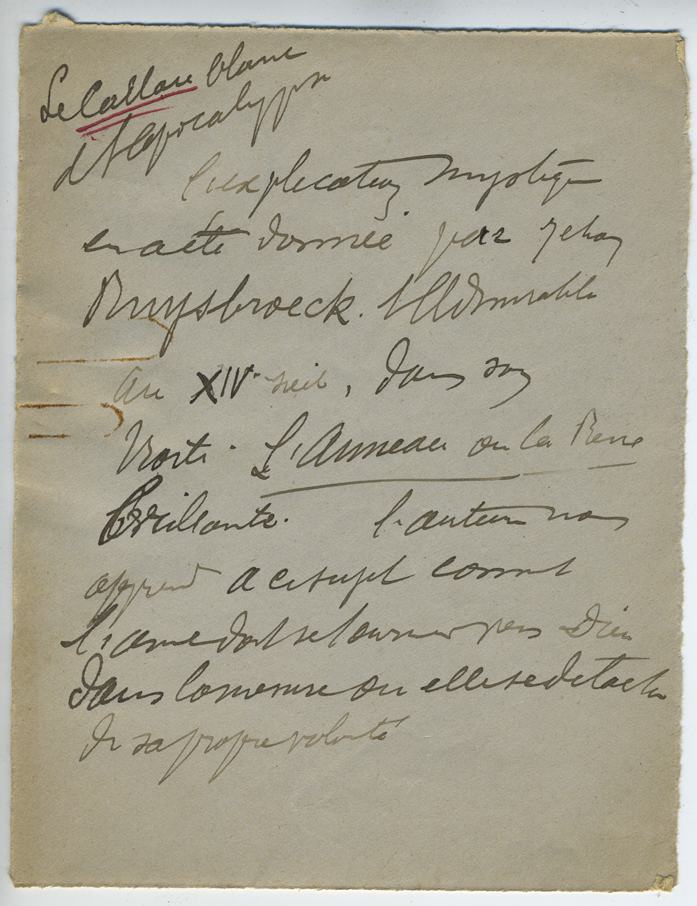 Le Caillou blanc
de l'Apocalypse
L'explication mystique
en a été donnée par Jehan
Ruysbroeck l'Admirable
au XIVe siècle, dans son
traité. L'Anneau ou la Pierre
Brillante. L'auteur nous
apprend a ce sujet comment
l'ame doit se tourner vers Dieu
dans la mesure ou elle se detache
de sa propre volonté